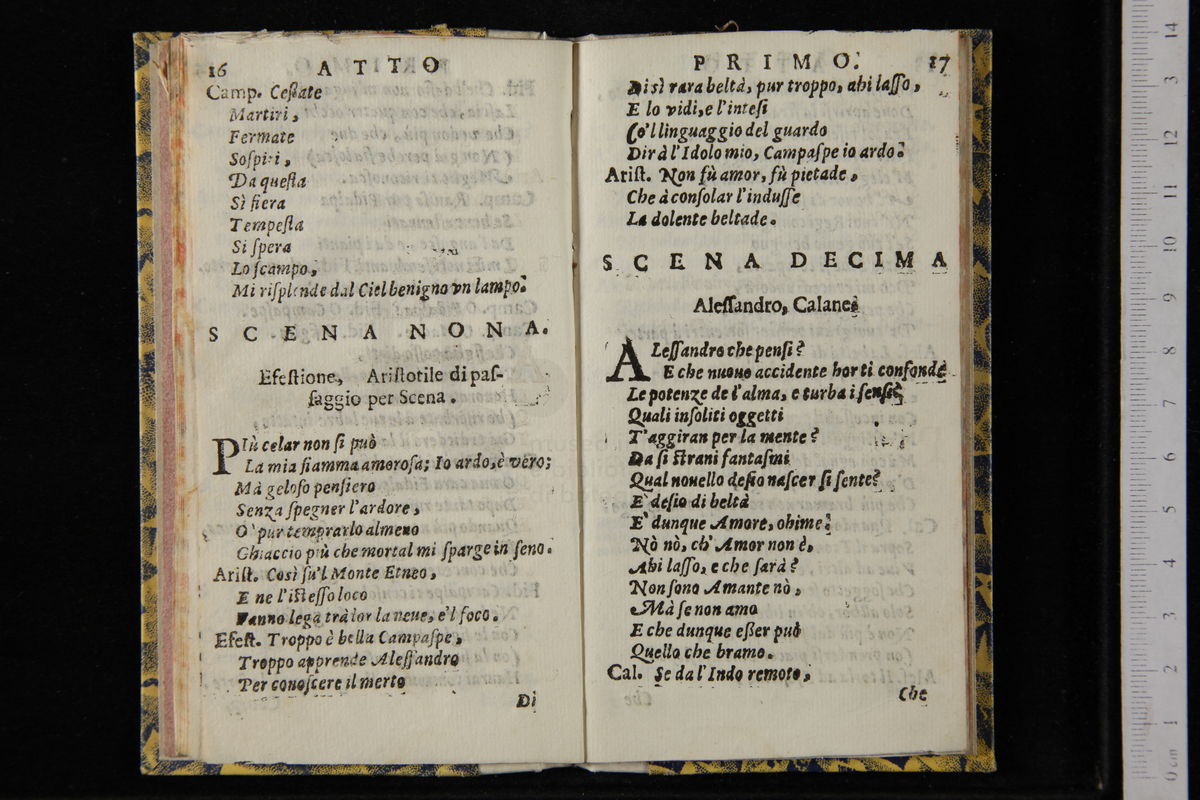 16 ATTO
Camp. Ceſſate
Martiri,
Fermate
Soſpiri,
Da queſta
Sì fiera
Tempeſta
Si ſpera
Lo ſcampo,
Mi riſplende dal Ciel benigno vn lampo.
SCENA NONA.
Efeſtione, Ariſtotile di paſ-
ſaggio per Scena.
PIù celar non ſi può
La mia fiamma amoroſa; Io ardo, è vero;
Mà geloſo penſiero
Senza ſpegner l'ardore,
O' pur temprarlo almeno
Ghiaccio più che mortal mi ſparge in ſeno.
Ariſt. Così ſu'l Monte Etneo,
E ne l'iſteſſo loco
Fanno lega trà lor la neue, e'l foco.
Efeſt. Troppo è bella Campaſpe,
Troppo apprende Aleſſandro
Per conoſcere il merto
Di
PRIMO. 17
Di sì rara beltà, pur troppo, ahi laſſo,
E lo vidi, e l'inteſi
Co'l linguaggio del guardo
Dir à l'Idolo mio, Campaſpe io ardo.
Ariſt. Non fù amor, fù pietade,
Che à conſolar l'induſſe
La dolente beltade.
SCENA DECIMA
Aleſſandro, Calane
ALeſſandro che penſi?
E che nuouo accidente hor ti confonde
Le potenze de l'alma, e turba i ſenſi?
Quali inſoliti oggetti
T'aggiran per la mente?
Da ſi ſtrani fantaſmi
Qual nouello deſio naſcer ſi ſente?
E' deſio di beltà
E' dunque Amore, ohime!
Nò nò, ch' Amor non è,
Ahi laſſo, e che ſarà?
Non ſono Amante nò,
Mà ſe non amo
E che dunque eſſer può
Quello che bramo.
Cal. Se da l'Indo remoto,
Che
0 cm 1 2 3 4 5 6 7 8 9 10 11 12 3 14